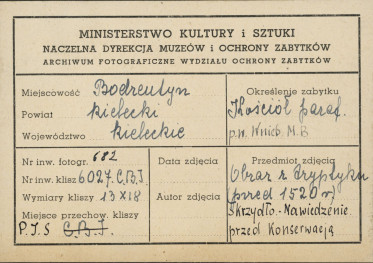 MINISTERSTWO KULTURY i SZTUKI
NACZELNA DYREKCJA MUZEÓW i OCHRONY ZABYTKÓW
ARCHIWUM FOTOGRAFICZNE WYDZIAŁU OCHRONY ZABYTKÓW
Miejscowość Bodzentyn
Powiat kielecki
Województwo kieleckie
Określenie zabytku
Kościół paraf.
p.w. Wnieb. M.B
Nr inw. fotogr. 682
Nr inw. klisz 6027 C.B.I.
Wymiary kliszy 13 x 18
Miejsce przechow. kliszy
P.I.S C.B.I.
Data zdjęcia
Autor zdjęcia
Przedmiot zdjęcia
Obraz z tryptyku
(przed 1520 r)
Skrzydło.-Nawiedzenie.
przed Konserwacją